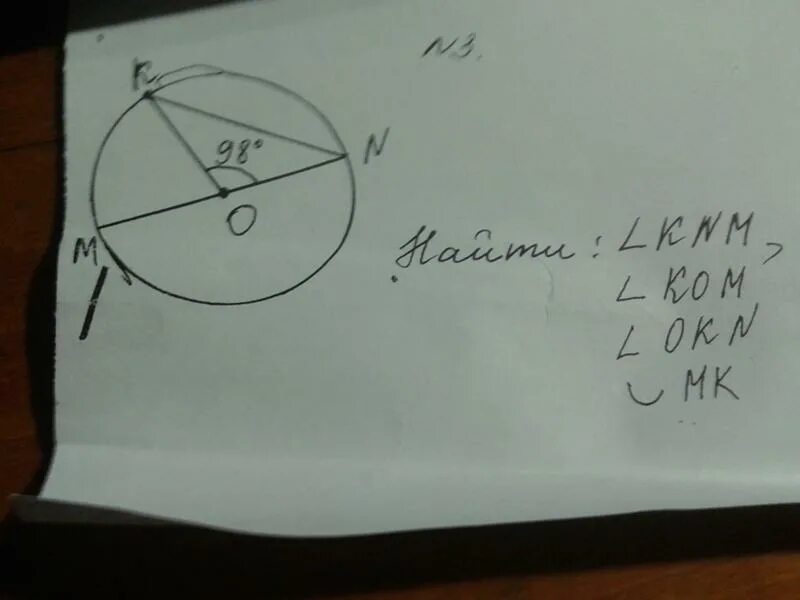 N3.
K
98°
N
O
M
Найти: ∠KNM,
∠KOM
∠OKN
◡MK